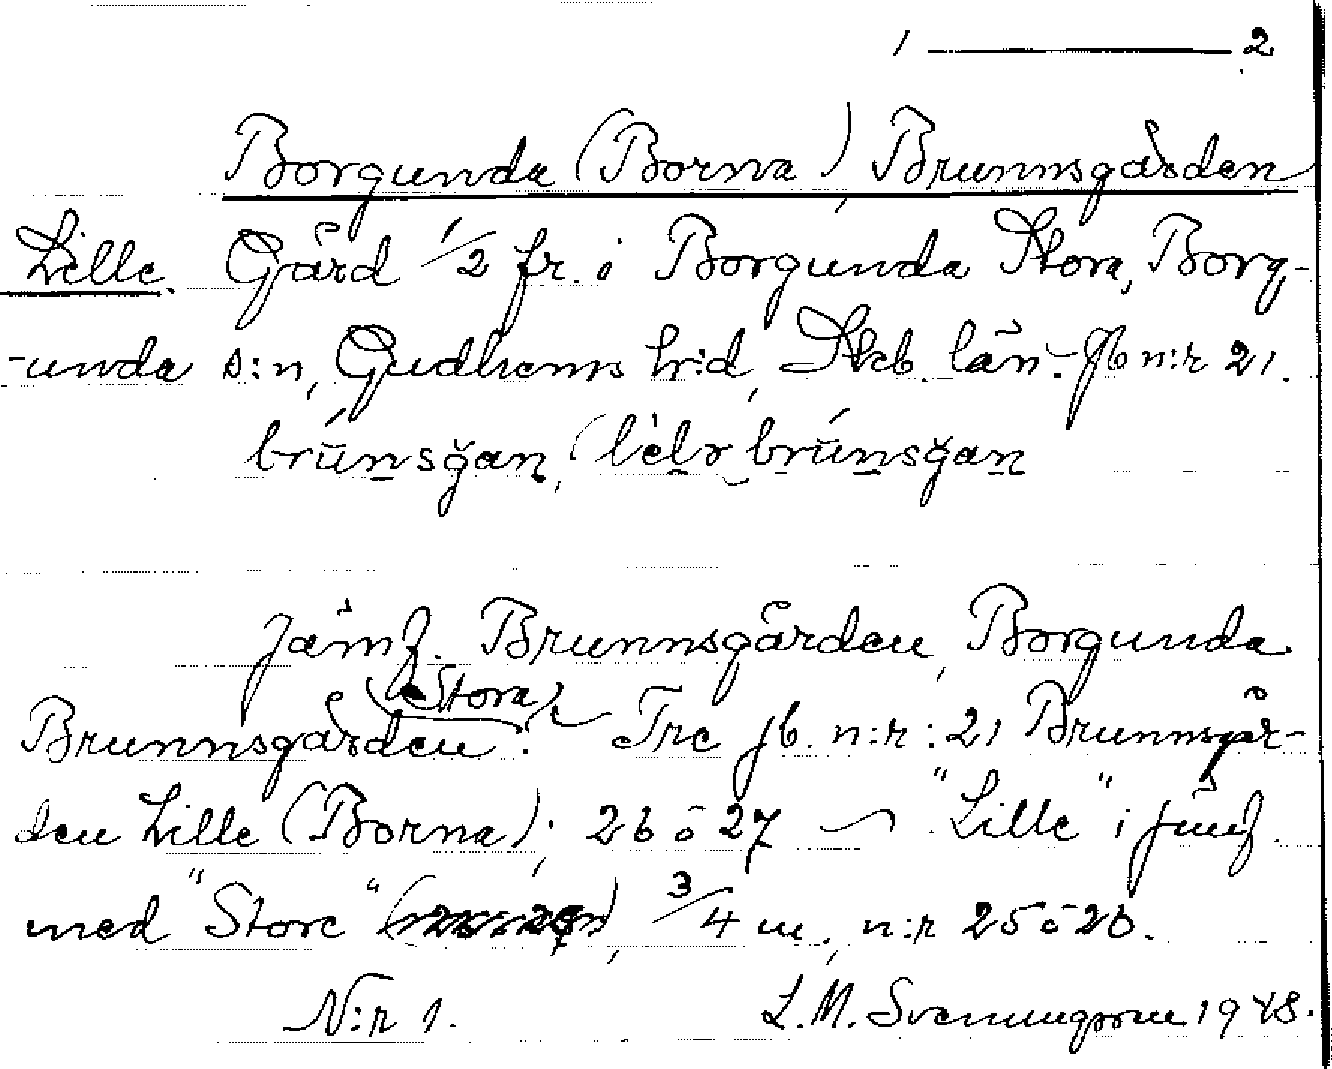 1 — 2
Borgunda (Borna), Brunnsgården
Lille. Gård 1/2 fr. i Borgunda Stora, Borg-
-unda s:n, Gudhems hr:d, Skb. län. Jb n:r 21.
brūnsğan, (
Jämf. Brunnsgården, Borgunda
Brunnsgården (Stora). Tre jb. n:r: 21 Brunnsgår-
den Lille (Borna); 26 o 27 "Lille" i jämf.
med "Store" , 3/4 m, n:r 25 o 26.
N:r 1. L.M. Svenungsson 1948.